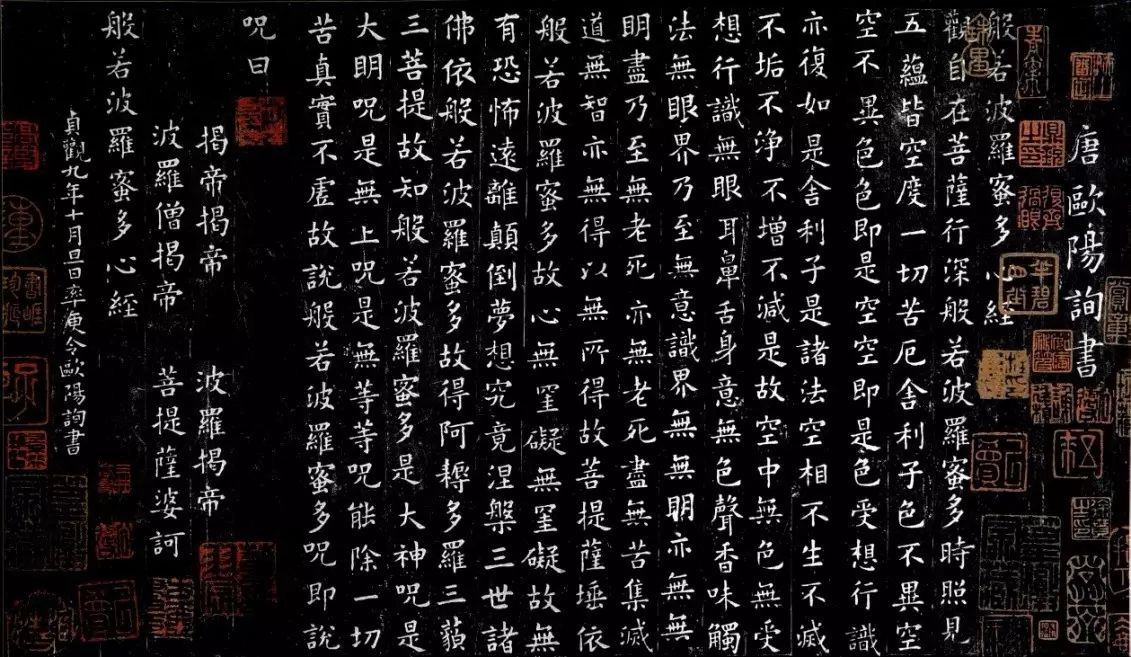 唐歐陽詢書
般若波羅蜜多心經
觀自在菩薩行深般若波羅蜜多時照見
五蘊皆空度一切苦厄舍利子色不異空
空不異色色即是空空即是色受想行識
亦復如是舍利子是諸法空相不生不滅
不垢不淨不增不減是故空中無色無受
想行識無眼耳鼻舌身意無色聲香味觸
法無眼界乃至無意識界無無明亦無無
明盡乃至無老死亦無老死盡無苦集滅
道無智亦無得以無所得故菩提薩埵依
般若波羅蜜多故心無罣礙無罣礙故無
有恐怖遠離顛倒夢想究竟涅槃三世諸
佛依般若波羅蜜多故得阿耨多羅三藐
三菩提故知般若波羅蜜多是大神咒是
大明咒是無上咒是無等等咒能除一切
苦真實不虛故說般若波羅蜜多咒即說
咒曰
揭帝揭帝 波羅揭帝
波羅僧揭帝 菩提薩婆訶
般若波羅蜜多心經
貞觀九年十月旦日率更令歐陽詢書